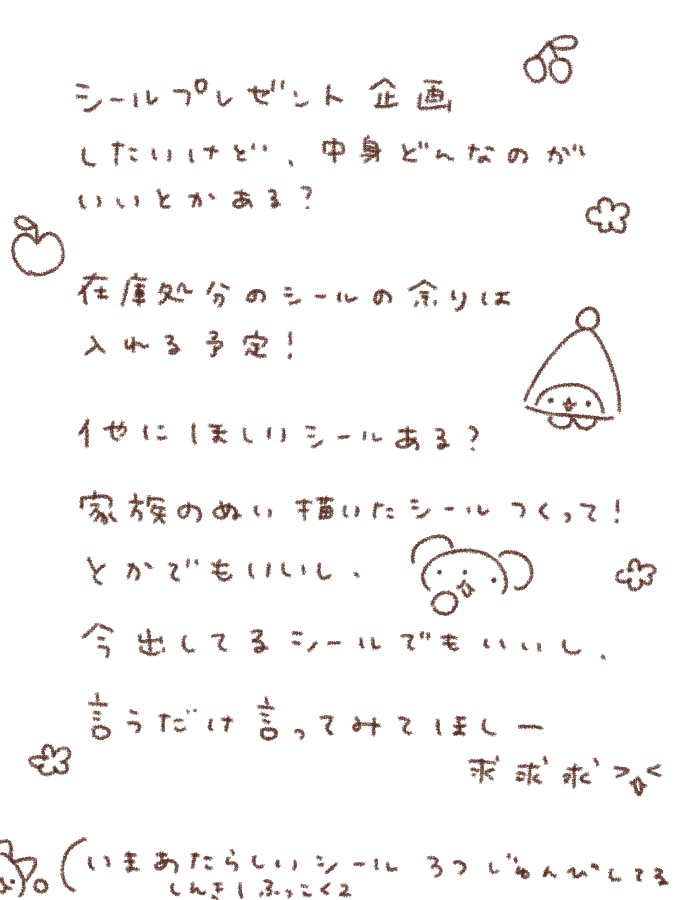 シールプレゼント企画
したいけど、中身どんなのが
いいとかある?
在庫処分のシールの余りは
入れる予定!
他にほしいシールある?
家族のぬい描いたシールつくって!
とかでもいいし、
今出してるシールでもいいし、
言うだけ言ってみてほしー
(いまあたらしいシール3つじゅんびしてる
しんき1ふっこく2